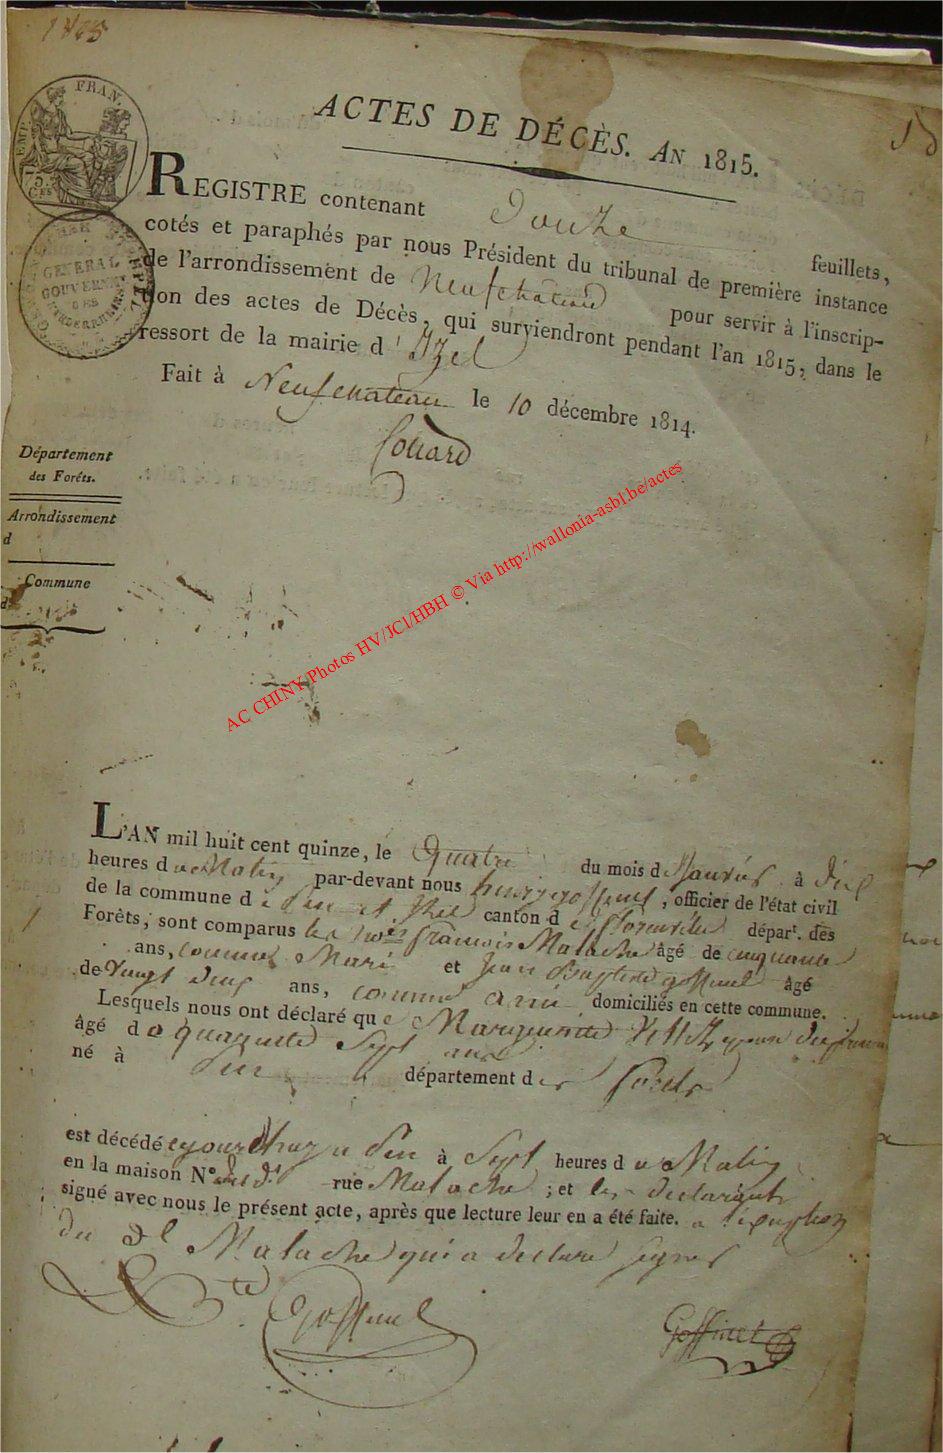 1815
15
ACTES DE DÉCÈS. AN 1815.
EMP. FRAN.
GENERAL
GOUVERNEM
DES
REGISTRE contenant Douze feuillets,
cotés et paraphés par nous Président du tribunal de première instance
de l'arrondissement de Neufchateau pour servir à l'inscrip-
tion des actes de Décès, qui surviendront pendant l'an 1815, dans le
ressort de la mairie d'Izel
Fait à Neufchateau le 10 décembre 1814.
Collard
Département
des Forêts.
Arrondissement
d
Commune
d
AC CHINY Photos HV/JCl/HBH © Via http://wallonia-asbl.be/actes
L'AN mil huit cent quinze, le Quatre du mois de Janvier à dix
heures du Matin par-devant nous goffinet, officier de l'état civil
de la commune de Pin et Izel canton de florenville départ. des
Forêts, sont comparus françois Malache âgé de cinquante
ans, comme Mari et Jean Baptiste goffinet âgé
de Vingt deux ans, comme ami domiciliés en cette commune.
Lesquels nous ont déclaré que Marguerite
âgé de quarente Sept ans
né à Pin département des Forets
est décédé cejourdhuy a Pin à Sept heures du Matin
en la maison N° rue Malache ; et les declarants
signé avec nous le présent acte, après que lecture leur en a été faite. a l'exception
du dt Malache qui a declaré
Goffinet
Goffinet